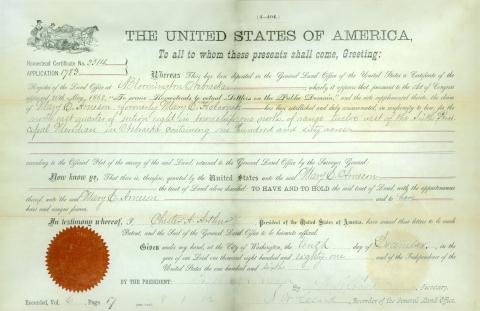 (4-404.)
THE UNITED STATES OF AMERICA,
To all to whom these presents shall come, Greeting:
Homestead Certificate No. 2314
APPLICATION 1783
Whereas There has been deposited in the General Land Office of the United States a Certificate of the
Register of the Land Office at Bloomington Nebraska, whereby it appears that, pursuant to the Act of Congress
approved 20th May, 1862, "To secure Homesteads to actual Settlers on the Public Domain," and the acts supplemental thereto, the claim
of Mary E. formerly Mary E. has been established and duly consummated, in conformity to law, for the
north east quarter of section eight in township one north of range twelve west of the Sixth Prin-
cipal Meridian in Nebraska containing one hundred and sixty acres
according to the Official Plat of the survey of the said Land, returned to the General Land Office by the Surveyor General.
Now know ye, That there is, therefore, granted by the United States unto the said Mary E.
the tract of Land above described: TO HAVE AND TO HOLD the said tract of Land, with the appurtenances
thereof, unto the said Mary E. and to her
heirs and assigns forever.
In testimony whereof, I Chester A. Arthur President of the United States of America, have caused these letters to be made
Patent, and the Seal of the General Land Office to be hereunto affixed.
Given under my hand, at the City of Washington, the tenth day of December, in the
year of our Lord one thousand eight hundred and eighty one and of the Independence of the
United States the one hundred and sixth
BY THE PRESIDENT:
Secretary.
Recorded, Vol. 6, Page 17
Recorder of the General Land Office.